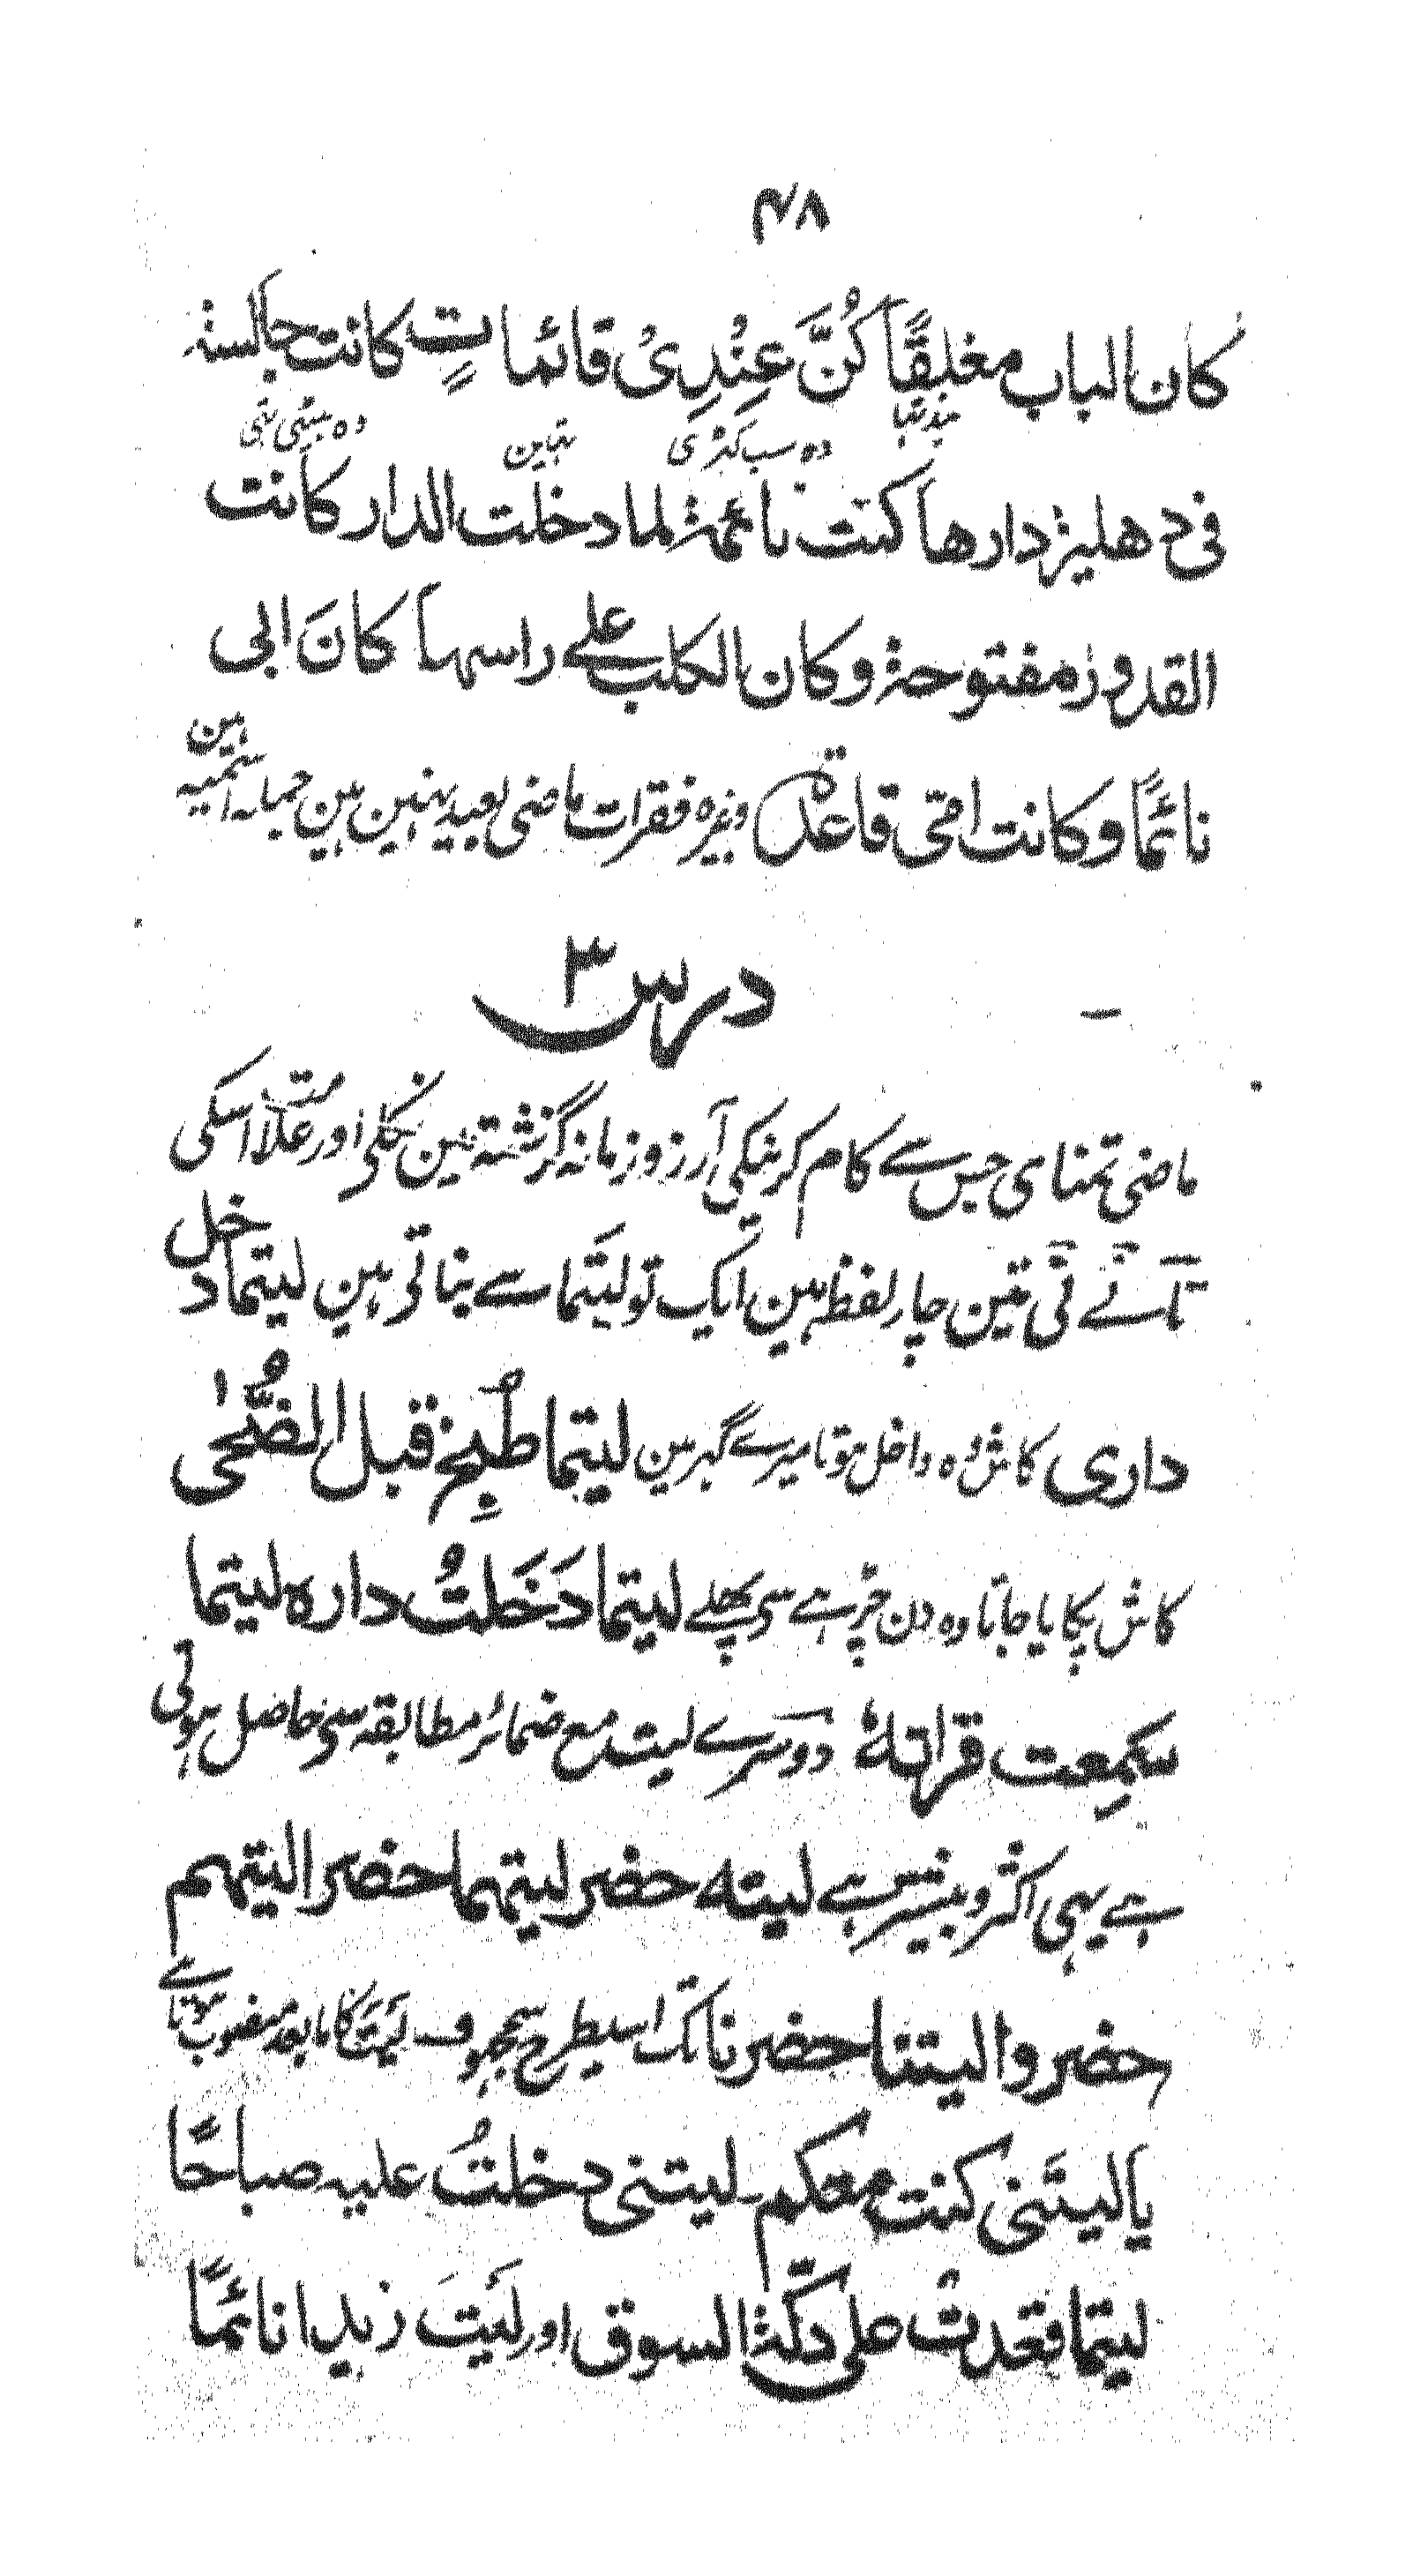 ۴۸
کان الباب مغلقًا کُنَّ عِنْدِیْ قائماتٍ کانت جالسۃ
بند تہا وہ سب کہڑی تہین وہ بیٹھی تہی
فی دھلیز دارھا کنت نائمۃ لما دخلت الدار کانت
القدور مفتوحۃ وکان الکلب علے راسھا کانَ ابی
نائمًا وکانت امی قاعدۃ وغیرہ فقرات ماضی بعید نہین ہین جملہ اسمیہ ہین
درس ۳
ماضی تمنای جس سے کام کرنیکی آرزو زمانہ گزشتہ مین نکلی اور علامت اسکی
تا تے تی تین چار لفظ ہین ایک تو لیتَما سے بناتی ہین لیتما دخل
داری کاش وہ داخل ہوتا میرے گہر مین لیتما طُبِخ قبل الضُّحٰی
کاش پکایا جاتا وہ دن چڑہے سی پہلے لیتما دَخَلتُ دارہ لیتما
سَمِعت قراتہٗ دوسرے لیت مع ضمائر مطابقہ سی حاصل ہوتی
ہے یہی اکثر و بیشتر ہے لیتہ حضر لیتھما حضرا لیتھم
حضروا لیتنا حضرنا تک اسیطرح سمجہو ف لَیتَ کا مابعد منصوب ہوتا ہے
یا لیتَنی کنت معکم۔ لیتنی دخلتُ علیہ صباحًا
لیتما قعدت علی دکۃ السوق اور لَیتَ زیدا نائمًا